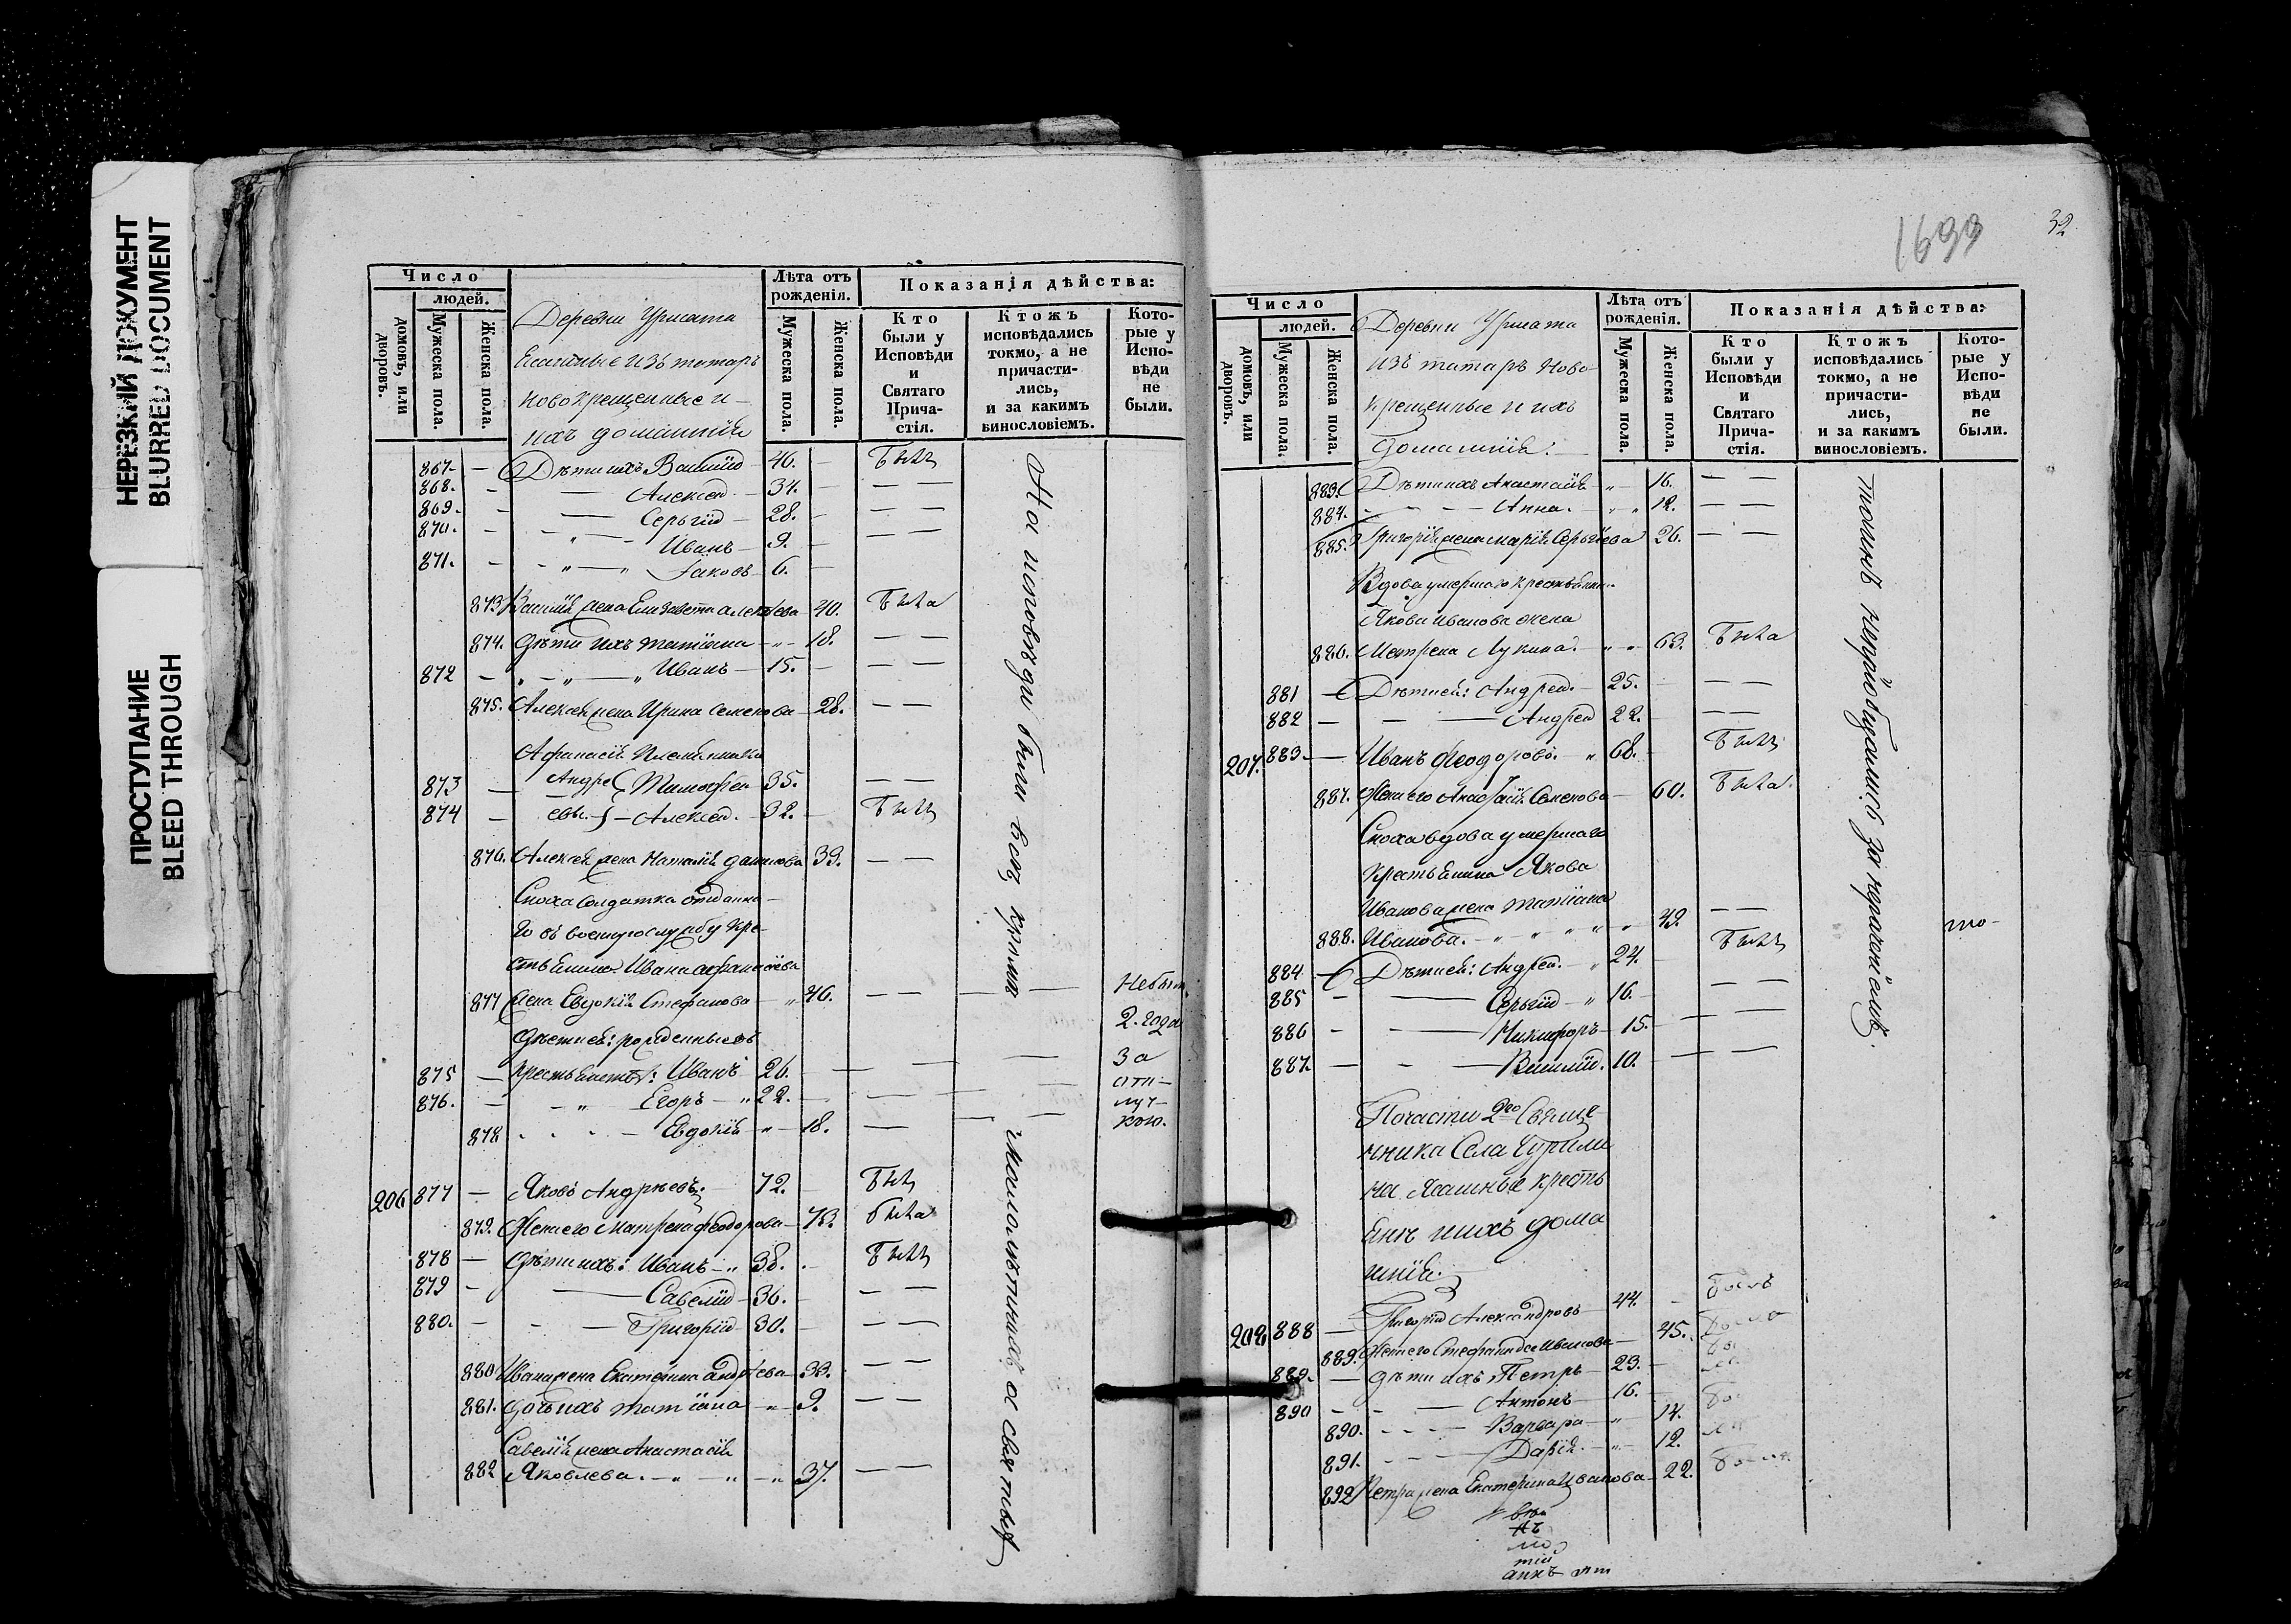 НЕРЕЗКИЙ ДОКУМЕНТ
BLURRED DOCUMENT
ПРОСТУПАНИЕ
BLEED THROUGH
Число
людей.
домовъ, или дворовъ.
Мужеска пола.
Женска пола.
Деревни Урмата
Ясашные изъ татаръ
новокрещенные и
ихъ домашнія
Лѣта отъ рожденія.
Мужеска пола.
Женска пола.
Показанія дѣйства:
Кто были у Исповѣди и Святаго Причастія.
Ктожъ исповѣдались токмо, а не причастились, и за какимъ винословіемъ.
Которые у Исповѣди не были.
867 — Дѣти ихъ Василій — 46. — Былъ
868. — Алексей — 34. — — —
869. — Сергій — 28. — — —
870. — Иванъ — 9. — — —
871. — Іаковъ — 6. —
873 Василія жена Елизавета Алексеева 40. Была
874. Дѣти ихъ Татіана — 18. — —
872 — Иванъ — 15. — — —
875. Алексея жена Ирина Семенова — 28. — —
Афанасія племянники
873 — Андре Тимофей 35. — —
874 — евы. — Алексей. — 32. — Былъ
876. Алексея жена Наталія Данилова 33. — —
Сноха солдатка отданна
го въ военную службу кре
стьянина Ивана Афанасіева
877 жена Евдокія Стефанова — 46. — — — — Небыт.
2. года
Дѣти ея: рожденные въ
за
875 — крестьянствѣ: Иванъ 26. — — —
отл
876. — Егоръ — 22. — — —
луч
878 Евдокія — 18. —
кою.
206 877 — Яковъ Андреевъ. 72. — Былъ
879. Жена его Матрена Феодорова — 73. была
878 — Дѣти ихъ: Иванъ — 38. — Былъ
879 — Савелій — 36. — — —
880. — Григорій — 30. — — —
880 Ивана жена Екатерина Андреева — 33. — —
881. Дочь ихъ Татіана — 9. — —
Савелія жена Анастасія
882 Яковлева. — 37. — —
На исповѣди были всѣ кромѣ малолѣтныхъ а святыхъ
1699
32
Число
людей.
домовъ, или дворовъ.
Мужеска пола.
Женска пола.
Деревни Урмата
изъ татаръ ново
крещенные и ихъ
домашнія.
Лѣта отъ рожденія.
Мужеска пола.
Женска пола.
Показанія дѣйства:
Кто были у Исповѣди и Святаго Причастія.
Ктожъ исповѣдались токмо, а не причастились, и за какимъ винословіемъ.
Которые у Исповѣди не были.
883. Дѣти ихъ Анастасія — 16. — —
884. — Анна. 12. — —
885. Григорія жена Марія Сергіева 26. — —
Вдова умершаго крестьянина
Якова Иванова жена
886. Матрена Лукина. 63. Была
881 — Дѣти ея: Андрей. — 25. — —
882 — Андрей 22. — —
207. 883. — Иванъ Феодоровъ. 68. Былъ
887. Жена его Анастасія Семенова — 60. Была
Сноха вдова умершаго
крестьянина Якова
Иванова жена Татіана
888. Иванова. 42. — —
884 — Дѣти ея: Андрей. 24. Былъ
885 — Сергій — 16. — —
886 — Никифоръ — 15. — —
887. — Василій. 10. — —
По части 2го Священ
ника Села
на Ясашные кресть
яне и ихъ дома
шнія.
208 888 — Григорій Александровъ 44. — былъ
889. Жена его Стефанида Иванова — 45. была
889. — Дѣти ихъ Петръ — 23.
890 — Антонъ — 16.
890. Варвара — 14.
891. Дарія. — 12.
892 Петра жена Екатерина Иванова — 22.
таинъ непріобщались за нераченіемъ.